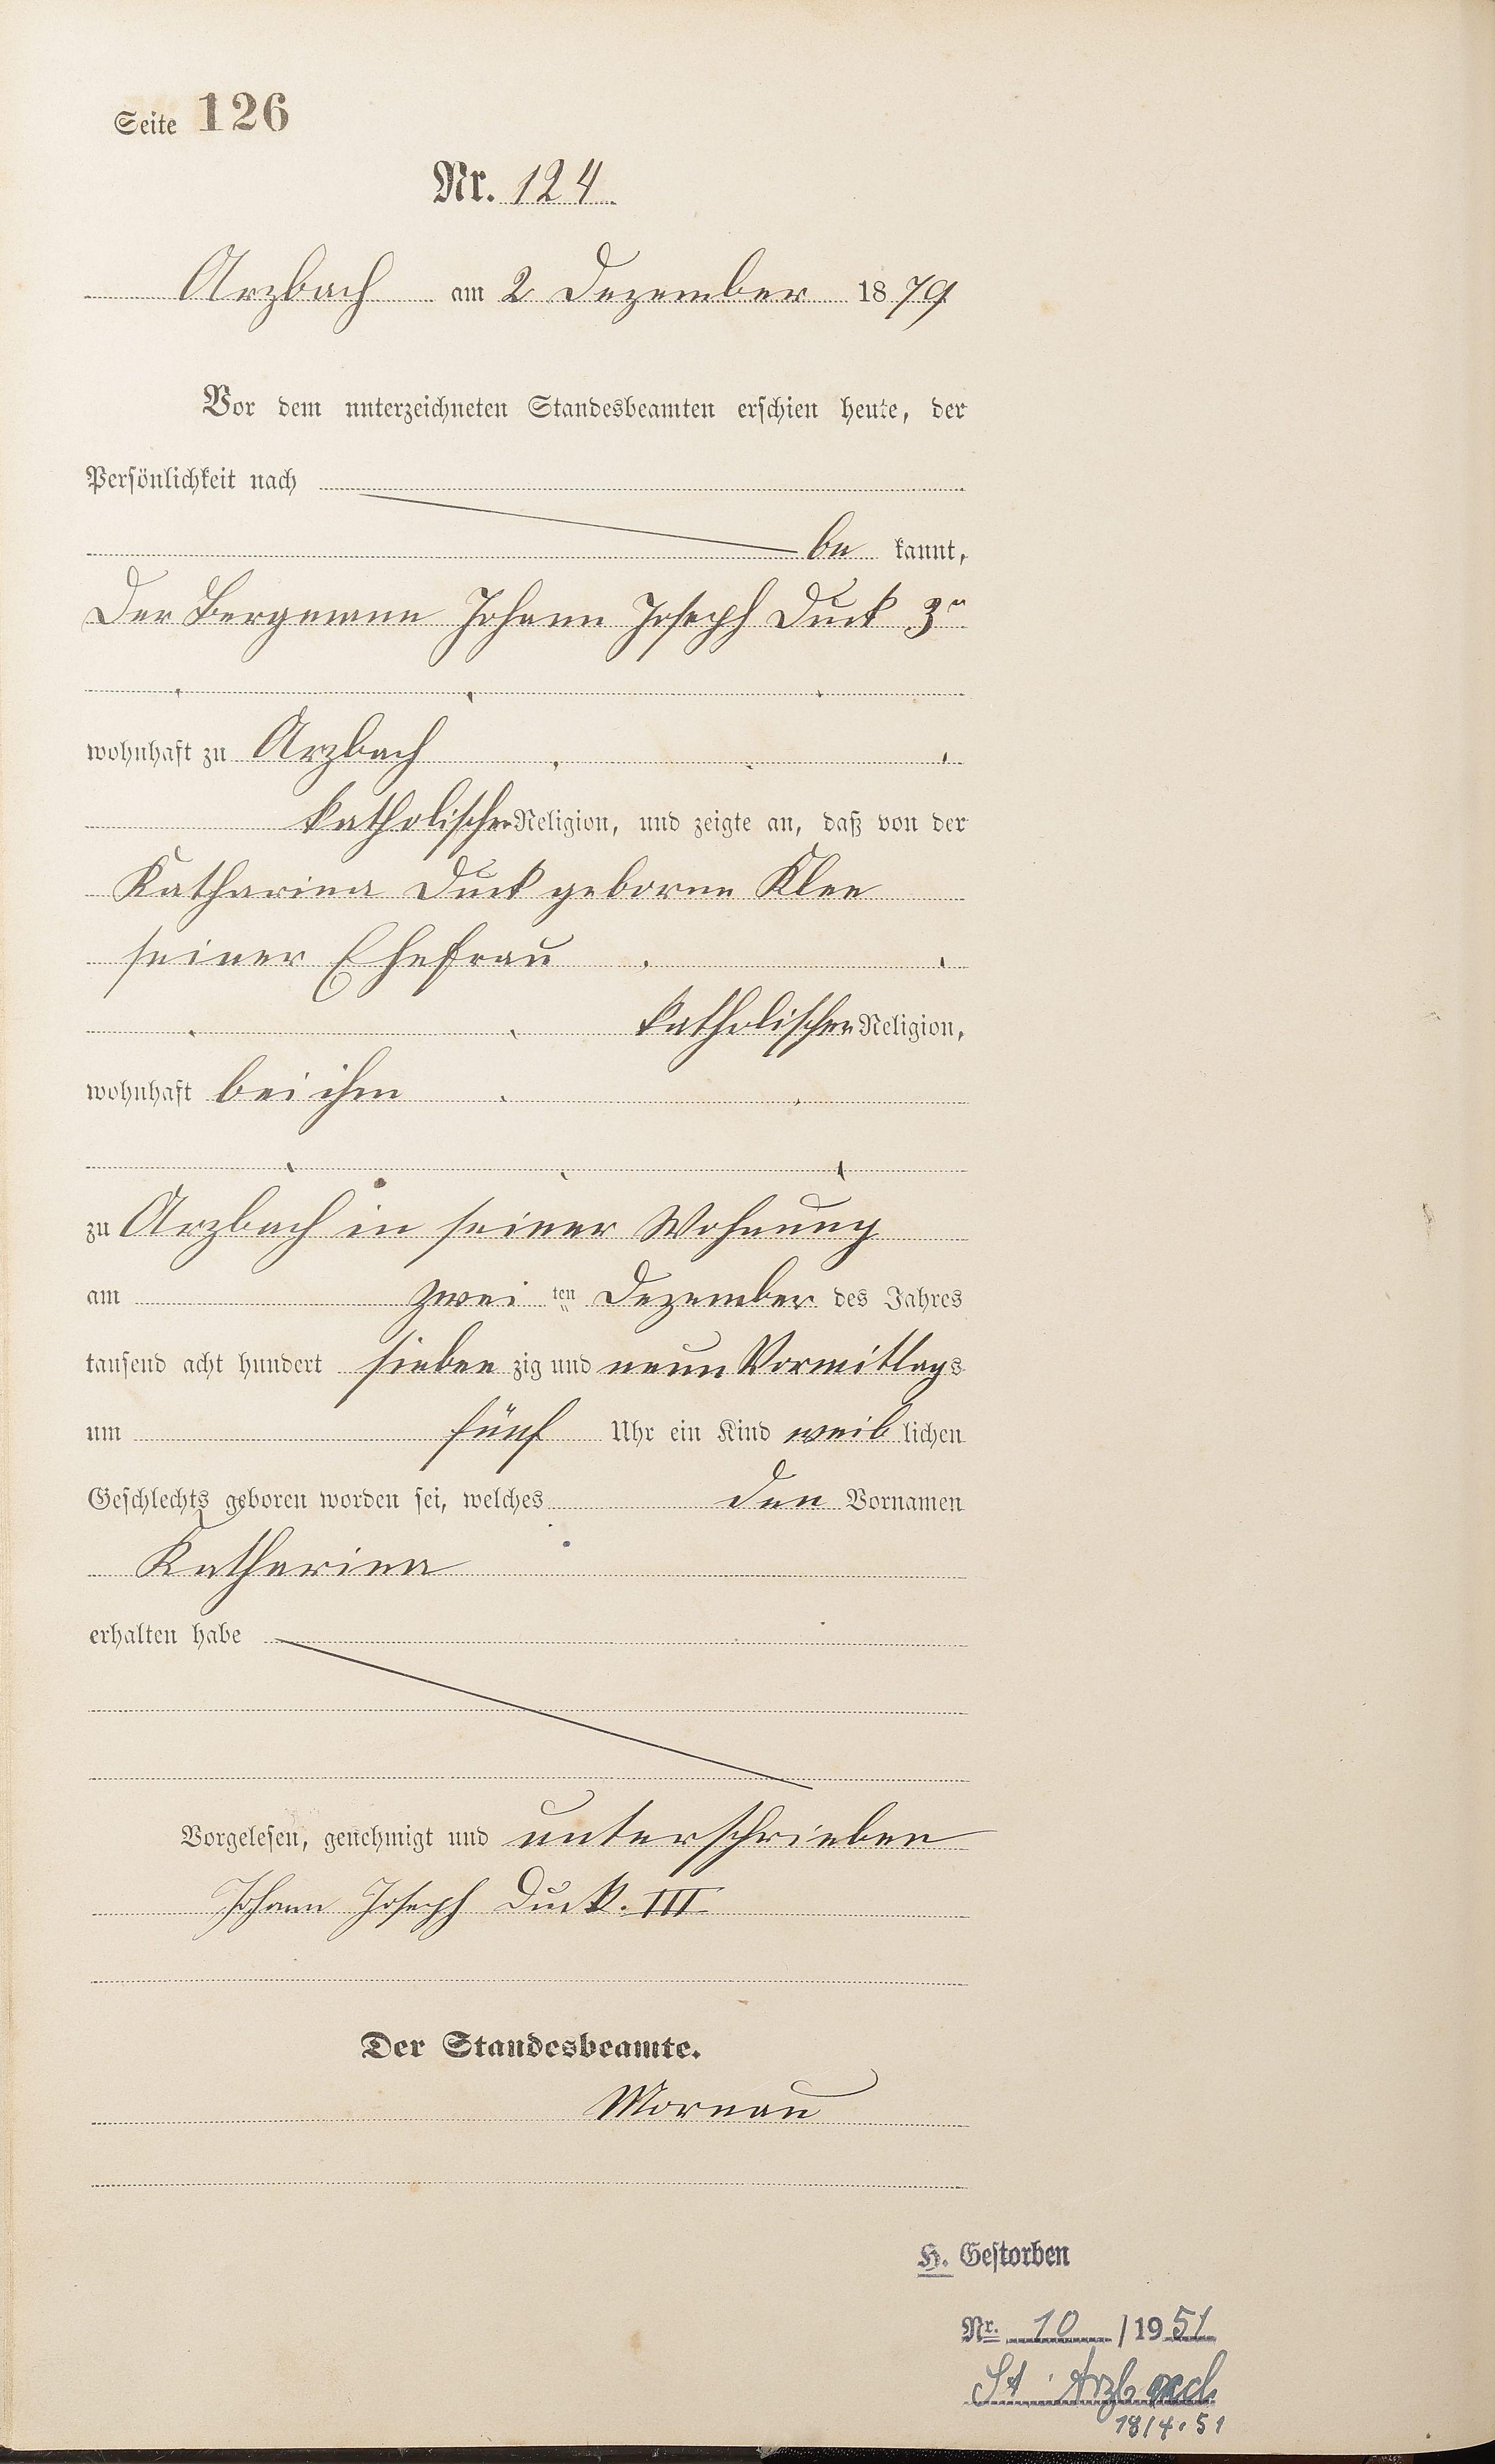 Seite 126
Nr. 124
Arzbach am 2 Dezember 1879
Vor dem unterzeichneten Standesbeamten erschien heute, der
Persönlichkeit nach
be kannt,
Der Bergmann Johann Joseph Duck 3r
wohnhaft zu Arzbach
katholischer Religion, und zeigte an, daß von der
Katharina Duck geborne Klee
seiner Ehefrau
katholischer Religion,
wohnhaft bei ihm
zu Arzbach in seiner Wohnung
am zwei ten Dezember des Jahres
tausend acht hundert sieben zig und neun Vormittags
um fünf Uhr ein Kind weib lichen
Geschlechts geboren worden sei, welches den Vornamen
Katharina
erhalten habe
Vorgelesen, genehmigt und unterschrieben
Johann Joseph Duck. III
Der Standesbeamte.
Mornau
H. Gestorben
Nr. 10 / 1951
St. Arzbach
18/4.51